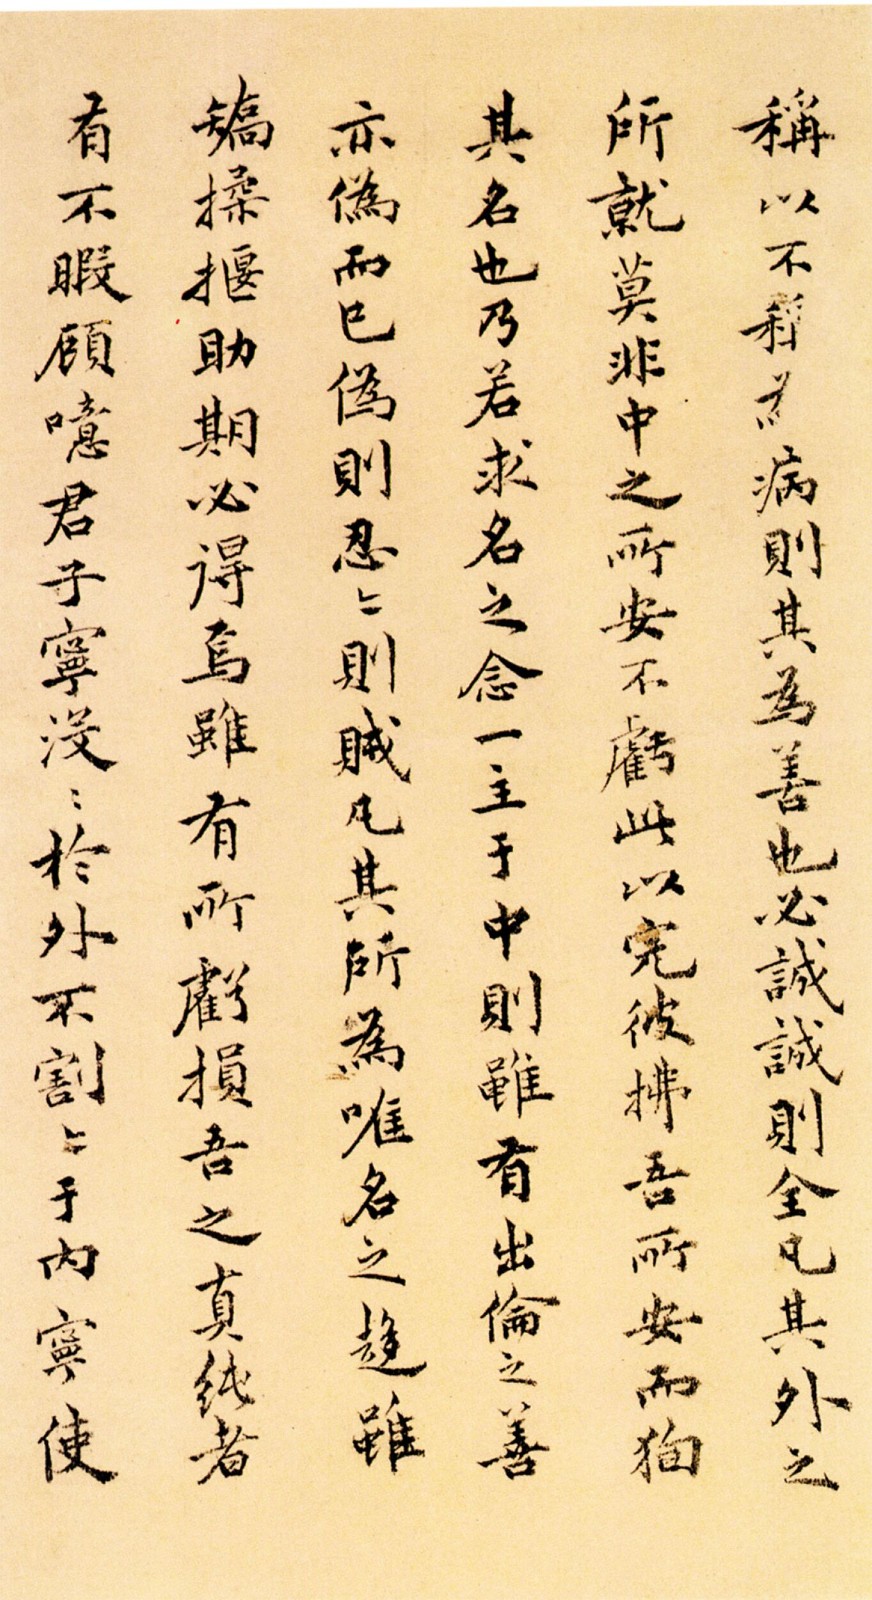 稱以不稱為病則其為善也必誠誠則全凡其外之
所就莫非中之所安不虧此以完彼拂吾所安而狥
其名也乃若求名之念一主于中則雖有出倫之善
亦偽而已偽則忍〻則賊凡其所為唯名之趨雖
矯揉揠助期必得焉雖有所虧損吾之真純者
有不暇顧噫君子寧没〻於外不割〻于内寧使